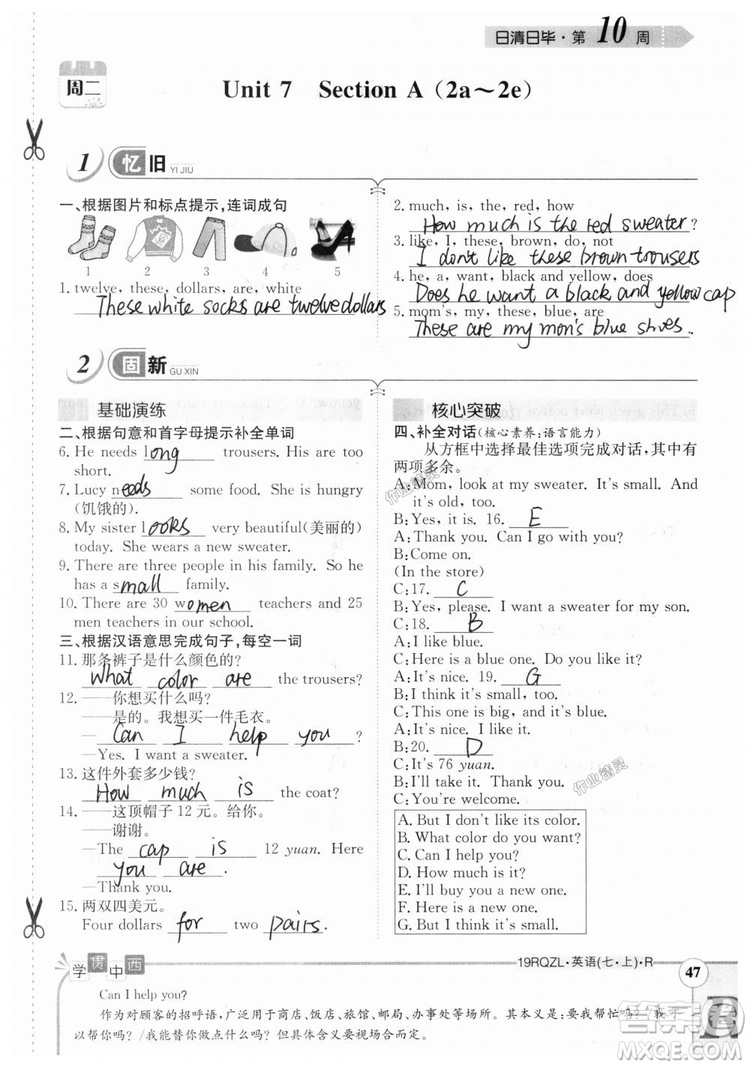 日清日毕·第10周
周二
Unit 7 Section A（2a～2e）
1 忆旧 YI JIU
一、根据图片和标点提示,连词成句
1 2 3 4 5
1. twelve, these, dollars, are, white
These white socks are twelve dollars
2. much, is, the, red, how
How much is the red sweater?
3. like, I, these, brown, do, not
I don't like these brown trousers
4. he, a, want, black and yellow, does
Does he want a black and yellow cap
5. mom's, my, these, blue, are
These are my mom's blue shoes.
2 固新 GU XIN
基础演练
二、根据句意和首字母提示补全单词
6. He needs long trousers. His are too
short.
7. Lucy needs some food. She is hungry
(饥饿的).
8. My sister looks very beautiful(美丽的)
today. She wears a new sweater.
9. There are three people in his family. So he
has a small family.
10. There are 30 women teachers and 25
men teachers in our school.
三、根据汉语意思完成句子,每空一词
11. 那条裤子是什么颜色的?
What color are the trousers?
12. ——你想买什么吗?
——是的。我想买一件毛衣。
—Can I help you?
—Yes. I want a sweater.
13. 这件外套多少钱?
How much is the coat?
14. ——这顶帽子 12 元。给你。
——谢谢。
—The cap is 12 yuan. Here
you are.
—Thank you.
15. 两双四美元。
Four dollars for two pairs.
核心突破
四、补全对话(核心素养:语言能力)
从方框中选择最佳选项完成对话,其中有
两项多余。
A: Mom, look at my sweater. It's small. And
it's old, too.
B: Yes, it is. 16. E
A: Thank you. Can I go with you?
B: Come on.
(In the store)
C: 17. C
B: Yes, please. I want a sweater for my son.
C: 18. B
A: I like blue.
C: Here is a blue one. Do you like it?
A: It's nice. 19. G
B: I think it's small, too.
C: This one is big, and it's blue, too.
A: It's nice. I like it.
B: 20. D
C: It's 76 yuan.
B: I'll take it. Thank you.
C: You're welcome.
A. But I don't like its color.
B. What color do you want?
C. Can I help you?
D. How much is it?
E. I'll buy you a new one.
F. Here is a new one.
G. But I think it's small.
作业精灵
作业精灵
学贯中西
19RQZL·英语(七·上)·R
47
Can I help you?
作为对顾客的招呼语,广泛用于商店、饭店、旅馆、邮局、办事处等场所。其本义是:要我帮忙吗?/我可
以帮你吗?/我能替你做点什么吗?但具体含义要视场合而定。